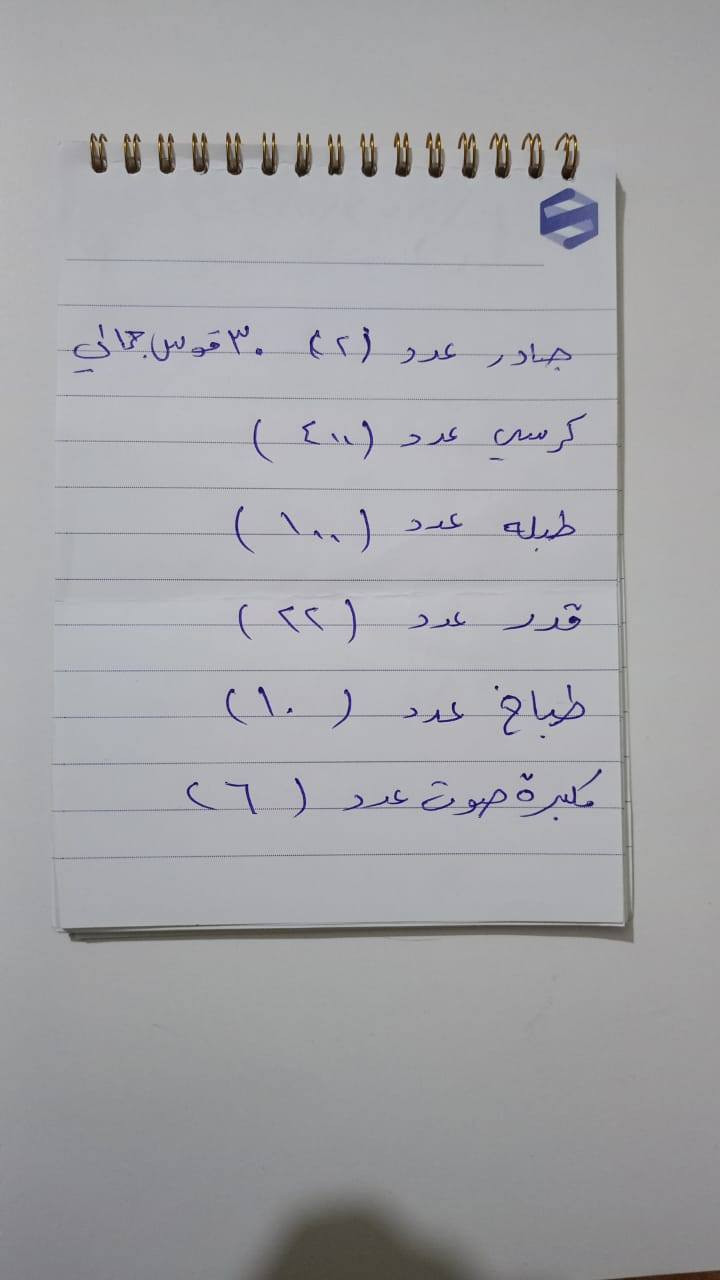 جادر عدد (٢) ٣٠ قوس جملي
كرسي عدد (٤٠٠)
طبله عدد (١٠٠)
قدر عدد (٢٢)
طباخ عدد (١٠)
مكبرة صوت عدد (٦)